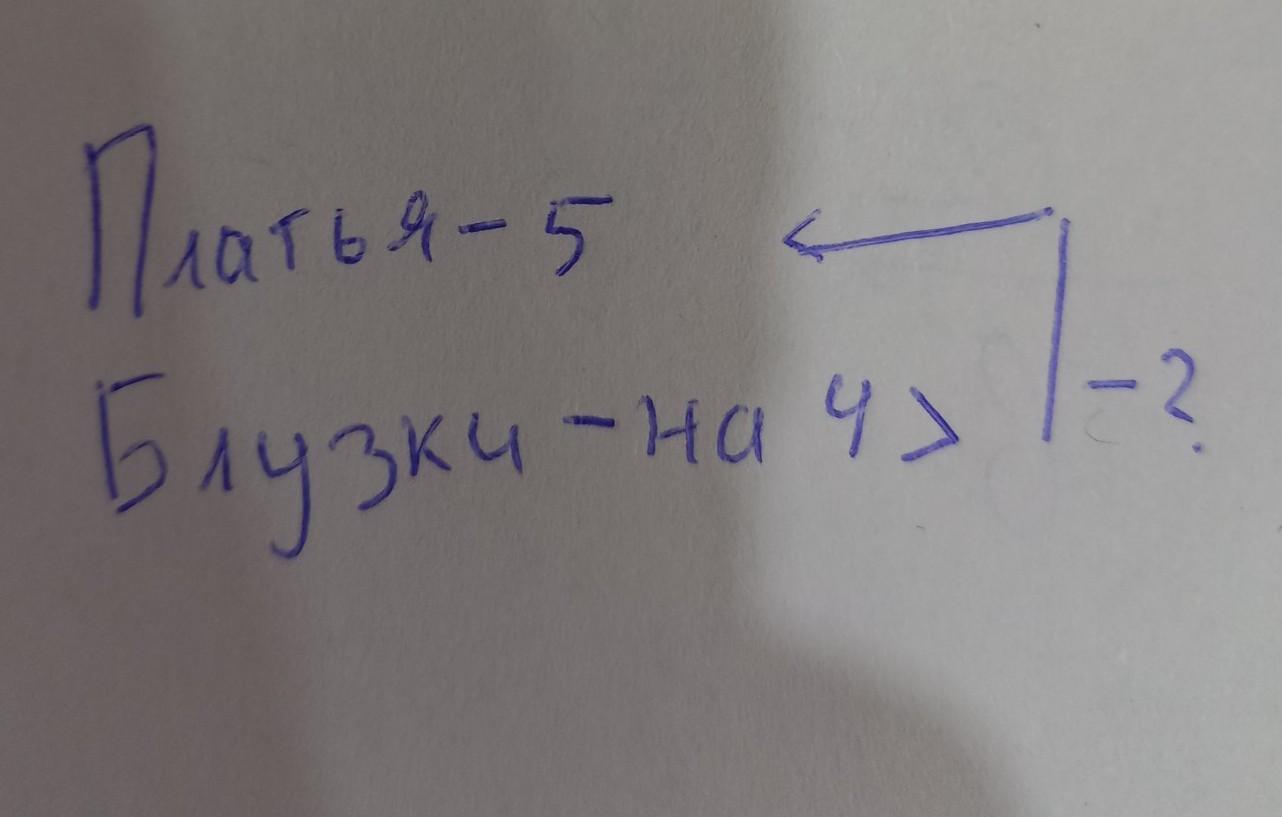 Платья - 5
Блузки - на 4 > - ?